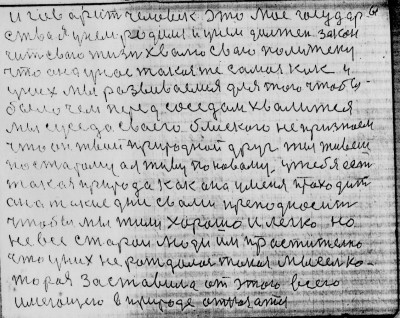 и говарит человек. это мое государ 61
ства я унем родилса и унем должен закон
чит сваю жизн хвалю сваю политеку
что ана унас такая же самая как и
у них мы развиваемся для того чтобы
было чем перед соседам хвалится
мы суседа сваего блиского не признаем
что он твой природной друг ты живеш
по старому а я живу по новаму, у тебя ест
такая природа как ана уменя проходит
ана такие дни с вами преподносит
чтобы мы жили хорошо и легко но
не все старои люди им простително
что у них не раждалос такая мысел ко-
торая заставила от этого всего
имеющего в природе отказатся